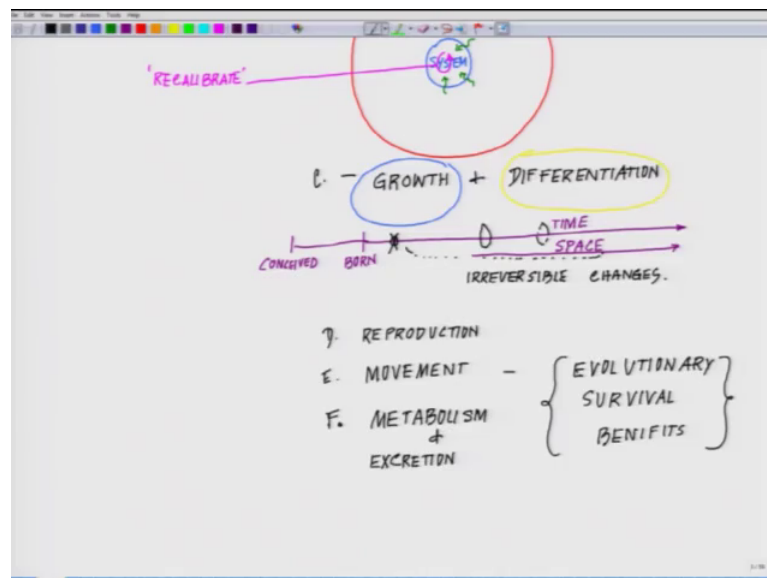 SYSTEM
'RECALIBRATE'
C. - GROWTH + DIFFERENTIATION
TIME
SPACE
CONCEIVED BORN
IRREVERSIBLE CHANGES.
D. REPRODUCTION
E. MOVEMENT - EVOLUTIONARY
SURVIVAL
F. METABOLISM
BENIFITS
&
EXCRETION